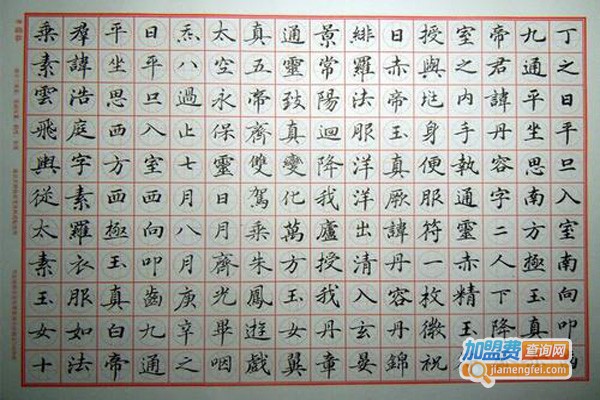 丁之日平旦入室南向叩
九通平坐思南方極玉真
帝君諱丹容字二人下降
室之内手執通靈赤精玉
授與身便服符一枚微祝
日赤帝玉真厥諱丹容丹錦
緋羅法服洋洋出清入玄晏
景常陽迴降我廬授我丹章
通靈致真變化萬方玉女翼
真五帝齊雙駕乘朱鳳遊戲
太空永保靈日月齊光畢咽
炁八過止七月八月庚辛之
日平旦入室西向叩齒九通
平坐思西方西極玉真白帝
諱浩庭字素羅衣服如法
乘素雲飛輿從太素玉女十
加盟费查询网
jiamengfei.com